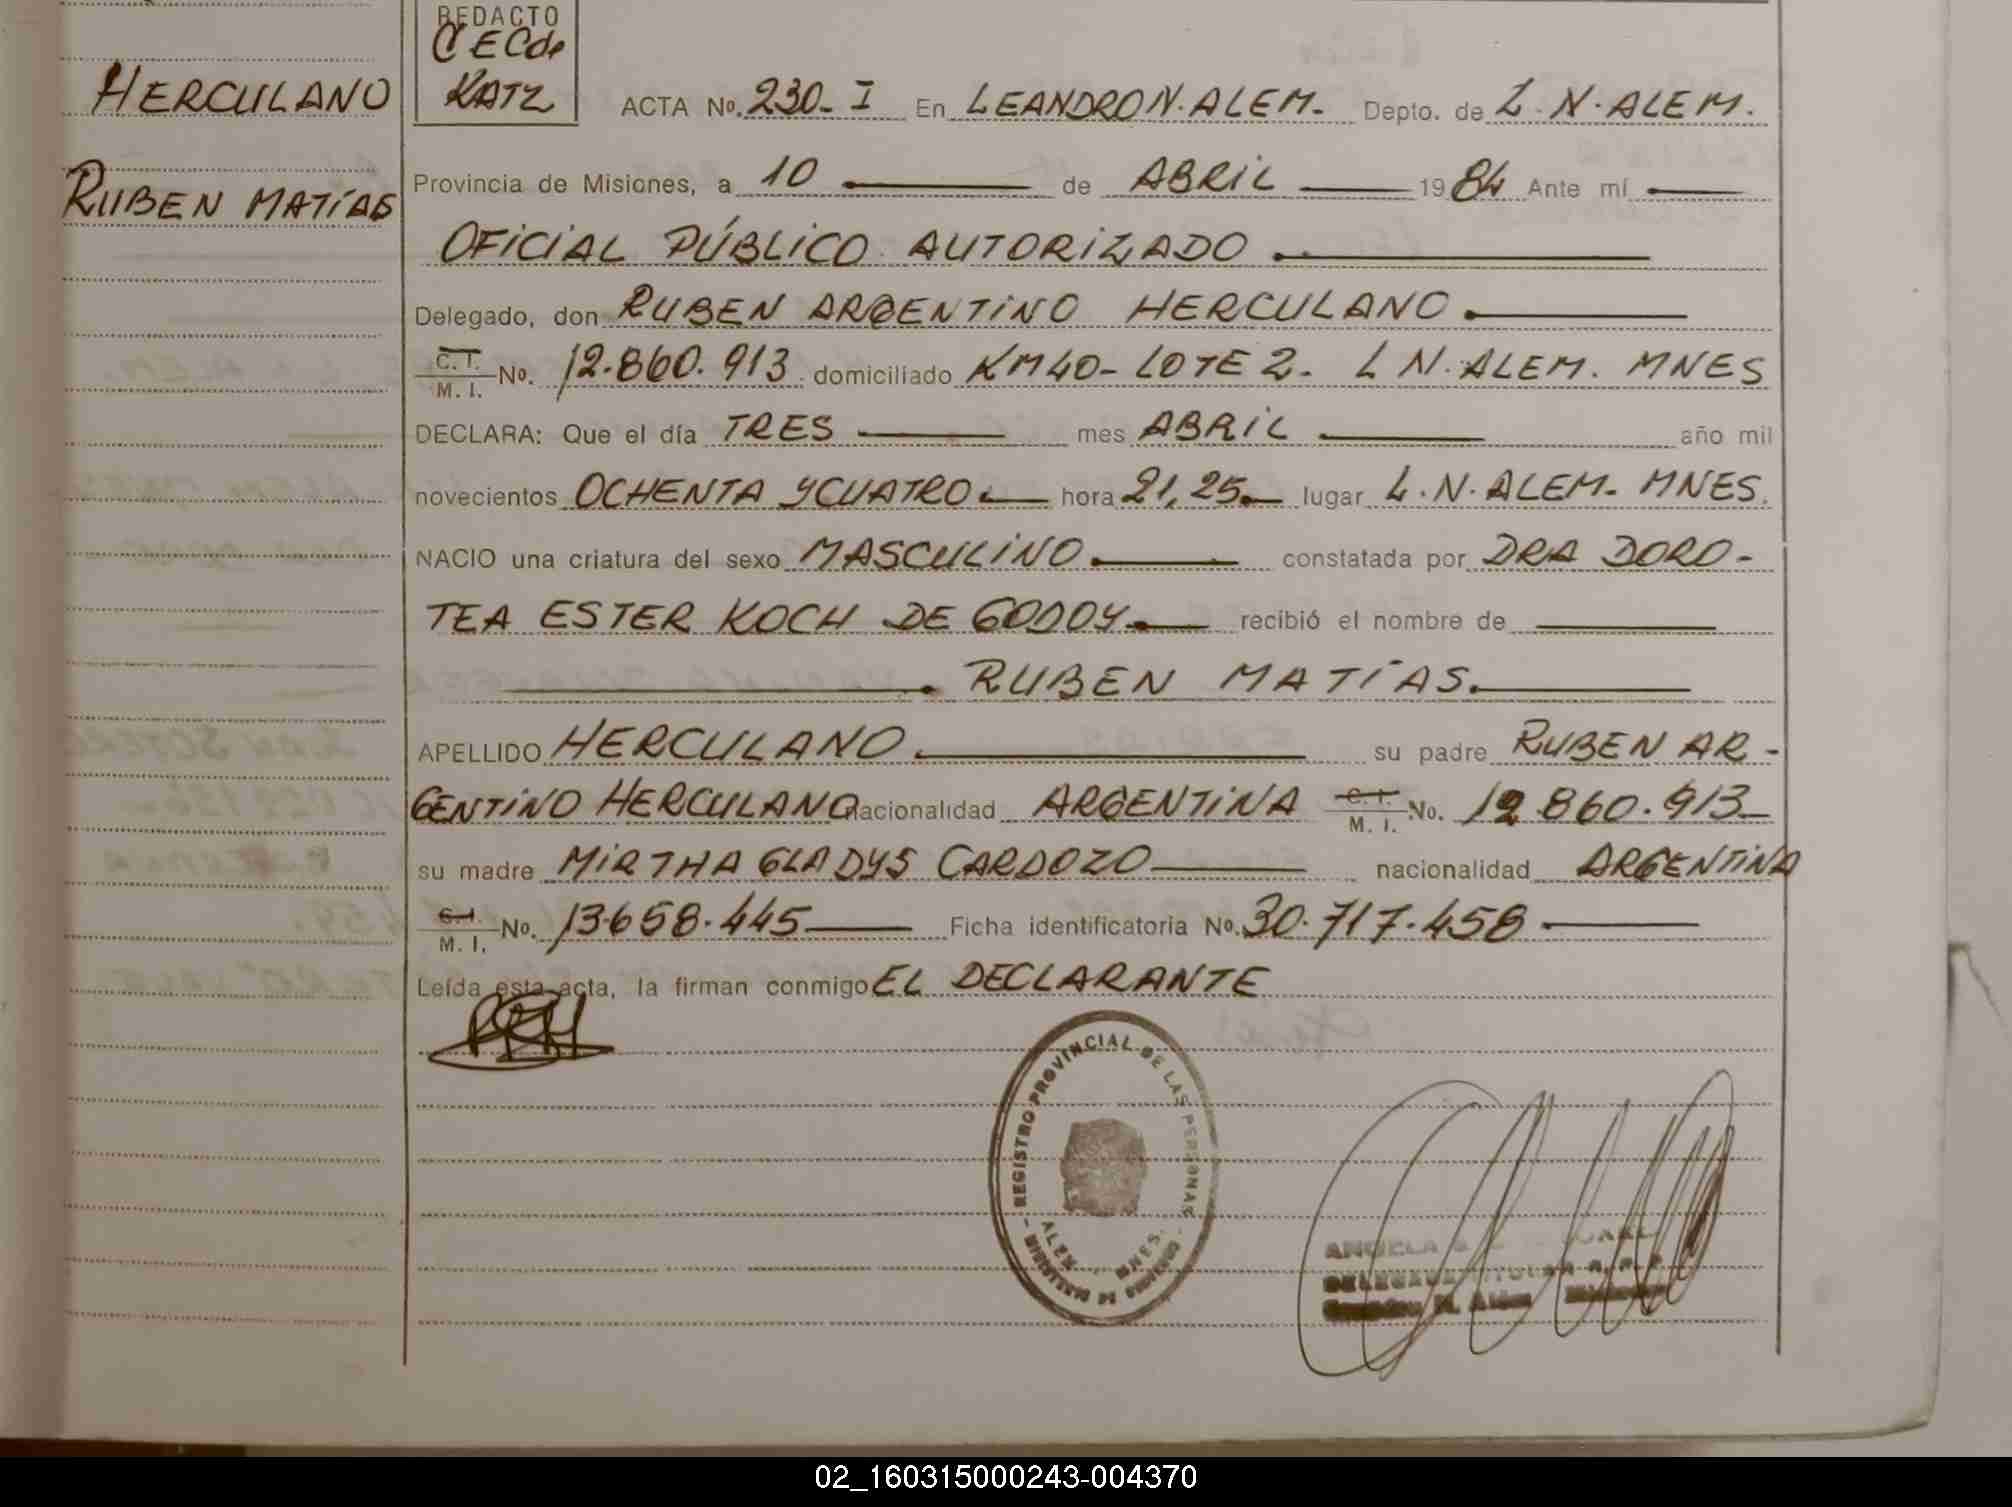 HERCULANO
RUBEN MATÍAS
REDACTO
C E C de
KATZ
ACTA No. 230- I En LEANDRO N. ALEM.- Depto. de L. N. ALEM.
Provincia de Misiones, a 10 de ABRiL 1984 Ante mí
OFiCiAL PÚBLiCO AUTORiZADO
Delegado, don RUBEN ARGENTiNO HERCULANO
C. I. / M. I. No. 12.860.913 domiciliado KM 40- LOTE 2- L N. ALEM. MNES
DECLARA: Que el día TRES mes ABRiL año mil
novecientos OCHENTA Y CUATRO hora 21,25 lugar L. N. ALEM- MNES.
NACIO una criatura del sexo MASCULiNO constatada por DRA DORO-
TEA ESTER KOCH DE GODOY recibió el nombre de
RUBEN MATÍAS.
APELLIDO HERCULANO su padre RUBEN AR-
GENTiNO HERCULANO nacionalidad ARGENTiNA C. I. / M. I. No. 12 860.913-
su madre MiRTHA GLADYS CARDOZO nacionalidad ARGENTiNA
C. I. / M. I. No. 13.658.445 Ficha identificatoria No. 30.717.458
Leída esta acta, la firman conmigo EL DECLARANTE
REGISTRO PROVINCIAL DE LAS PERSONAS
ALEM - MNES.
- MINISTERIO DE GOBIERNO -
ANGELA
02_160315000243-004370